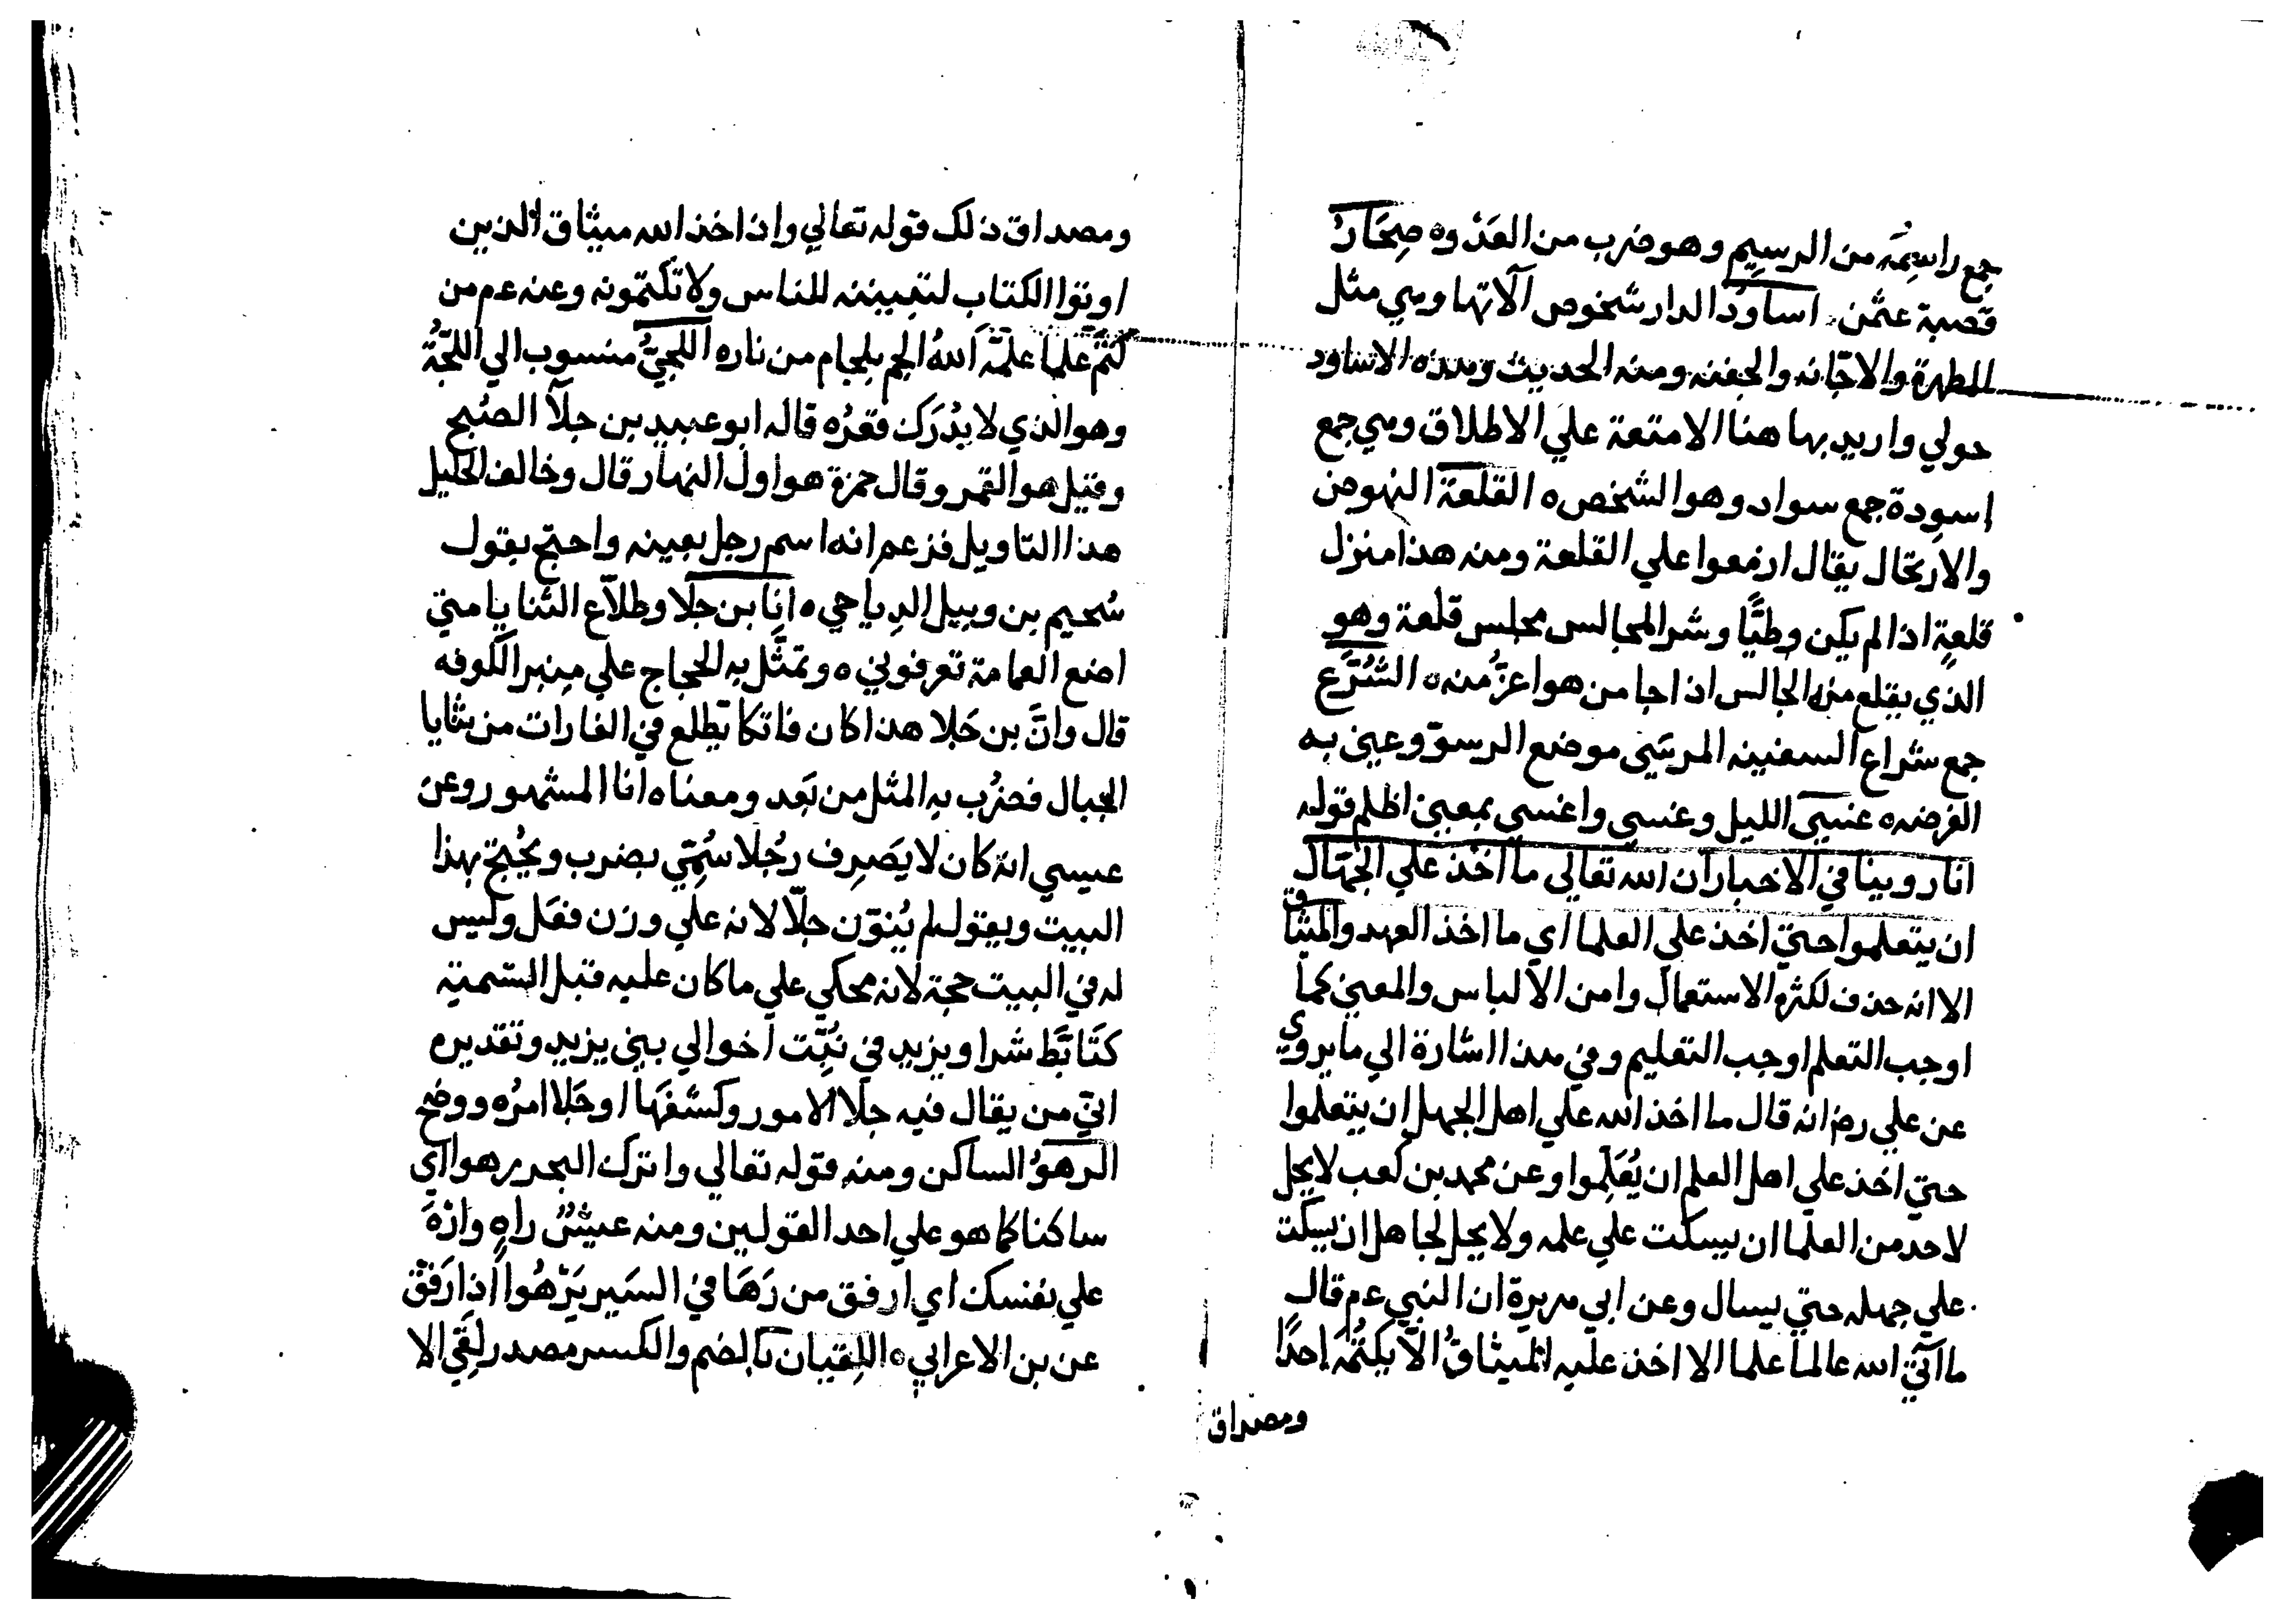 جمع راسِمَة من الرسيم وهو ضرب من العَدْوه صِحَارُ
قصبة عمّن اساوُد الدار شخوص آلاتها وهي مثل
المطهرة والاجّانه والجفنه ومنه الحديث وهذه الاساود
حولي واريد بها هنا الامتعة علي الاطلاق وهي جمع
اسوِدة جمع سواد وهو الشخص ه القلعة النهوض
والارتحال يقال ازمعوا علي القلعة ومنه هذا منزل
قلعةٍ اذا لم يكن وطيًّا وشر المجالس مجلس قلعة وهو
الذي يقلع منه الجالس اذا جا من هو اعزُّ منه ه الشُرُع
جمع شراع السفينه المرسَي موضع الرسوّ وعني به
الفرضه ه غسَي الليل وغسي واغسي بمعني اظلم قوله
انا روينا في الاخبار ان الله تعالي ما اخذ علي الجهّال
ان يتعلموا حتي اخذ علي العلما اي ما اخذ العهد والميثاق
الا انه حذف لكثرة الاستعمال وامن الالباس والمعني كما
اوجب التعلم اوجب التعليم وفي هذا اشارة الي ما يروي
عن علي رض انه قال ما اخذ الله علي اهل الجهل ان يتعلموا
حتي اخذ علي اهل العلم ان يُعَلِّموا وعن محمد بن كعب لا يحل
لاحد من العلما ان يسكت علي علمه ولا يحل لجاهل ان يسكت
علي جهله حتي يسال وعن ابي هريرة ان النبي عم قال
ما اتي الله عالما علما الا اخذ عليه الميثاقُ الّا يكتُمَه احدًا
ومصداق
ومصداق ذلك قوله تعالي واذ اخذ الله ميثاق الذين
اوتوا الكتاب لتبيننه للناس ولا تكتمونه وعنه عم من
كتم علما علّمَه اللهُ الجم بلجام من ناره اللُجيُّ منسوب الي اللجّة
وهو الذي لا يُدْرَك قعرُه قاله ابو عبيد بن جلاَ الصُبح
وقيل هو القمر وقال حمزة هو اول النهار قال وخالف الخليل
هذا التاويل فزعم انه اسم رجل بعينه واحتج بقول
سُحيم بن وبيل الرياحي ه انا بن جلا وطلاّع الثنايا متي
اضع العمامة تعرفوني ه وتمثّل به الحجاج علي منبر الكوفه
قال وانَّ بن جَلا هذا كان فاتكا يطلع في الغارات من ثنايا
الجبال فضُرِب به المثل من بَعد ومعناه انا المشهور وعن
عيسي انه كان لا يَصرِف رجُلا سُمِّي بضرب ويحُتج بهذا
البيت ويقول لم يُنوّن جلاّ لانه علي وزن فعَل وليس
له في البيت حجة لانه محكي علي ما كان عليه قبل التسمية
كتَابَّط شرا ويزيد في نُبِّت اخوالي بني يزيد وتقديره
انيّ من يقال فيه جلَا الامور وكشفَها او جَلا امرُه ووضح
الرهوُ الساكن ومنه قوله تعالي واترك البحر رهوا اي
ساكنا كما هو علي احد القولين ومنه عيشٌ راهٍ وارْهَ
علي نفسك اي ارفق من رَهَا في السَير يَرْهُوا اذا رَفَقَ
عن بن الاعرابي ه اللِقيان بالضم والكسر مصدر لَقِيَ الا